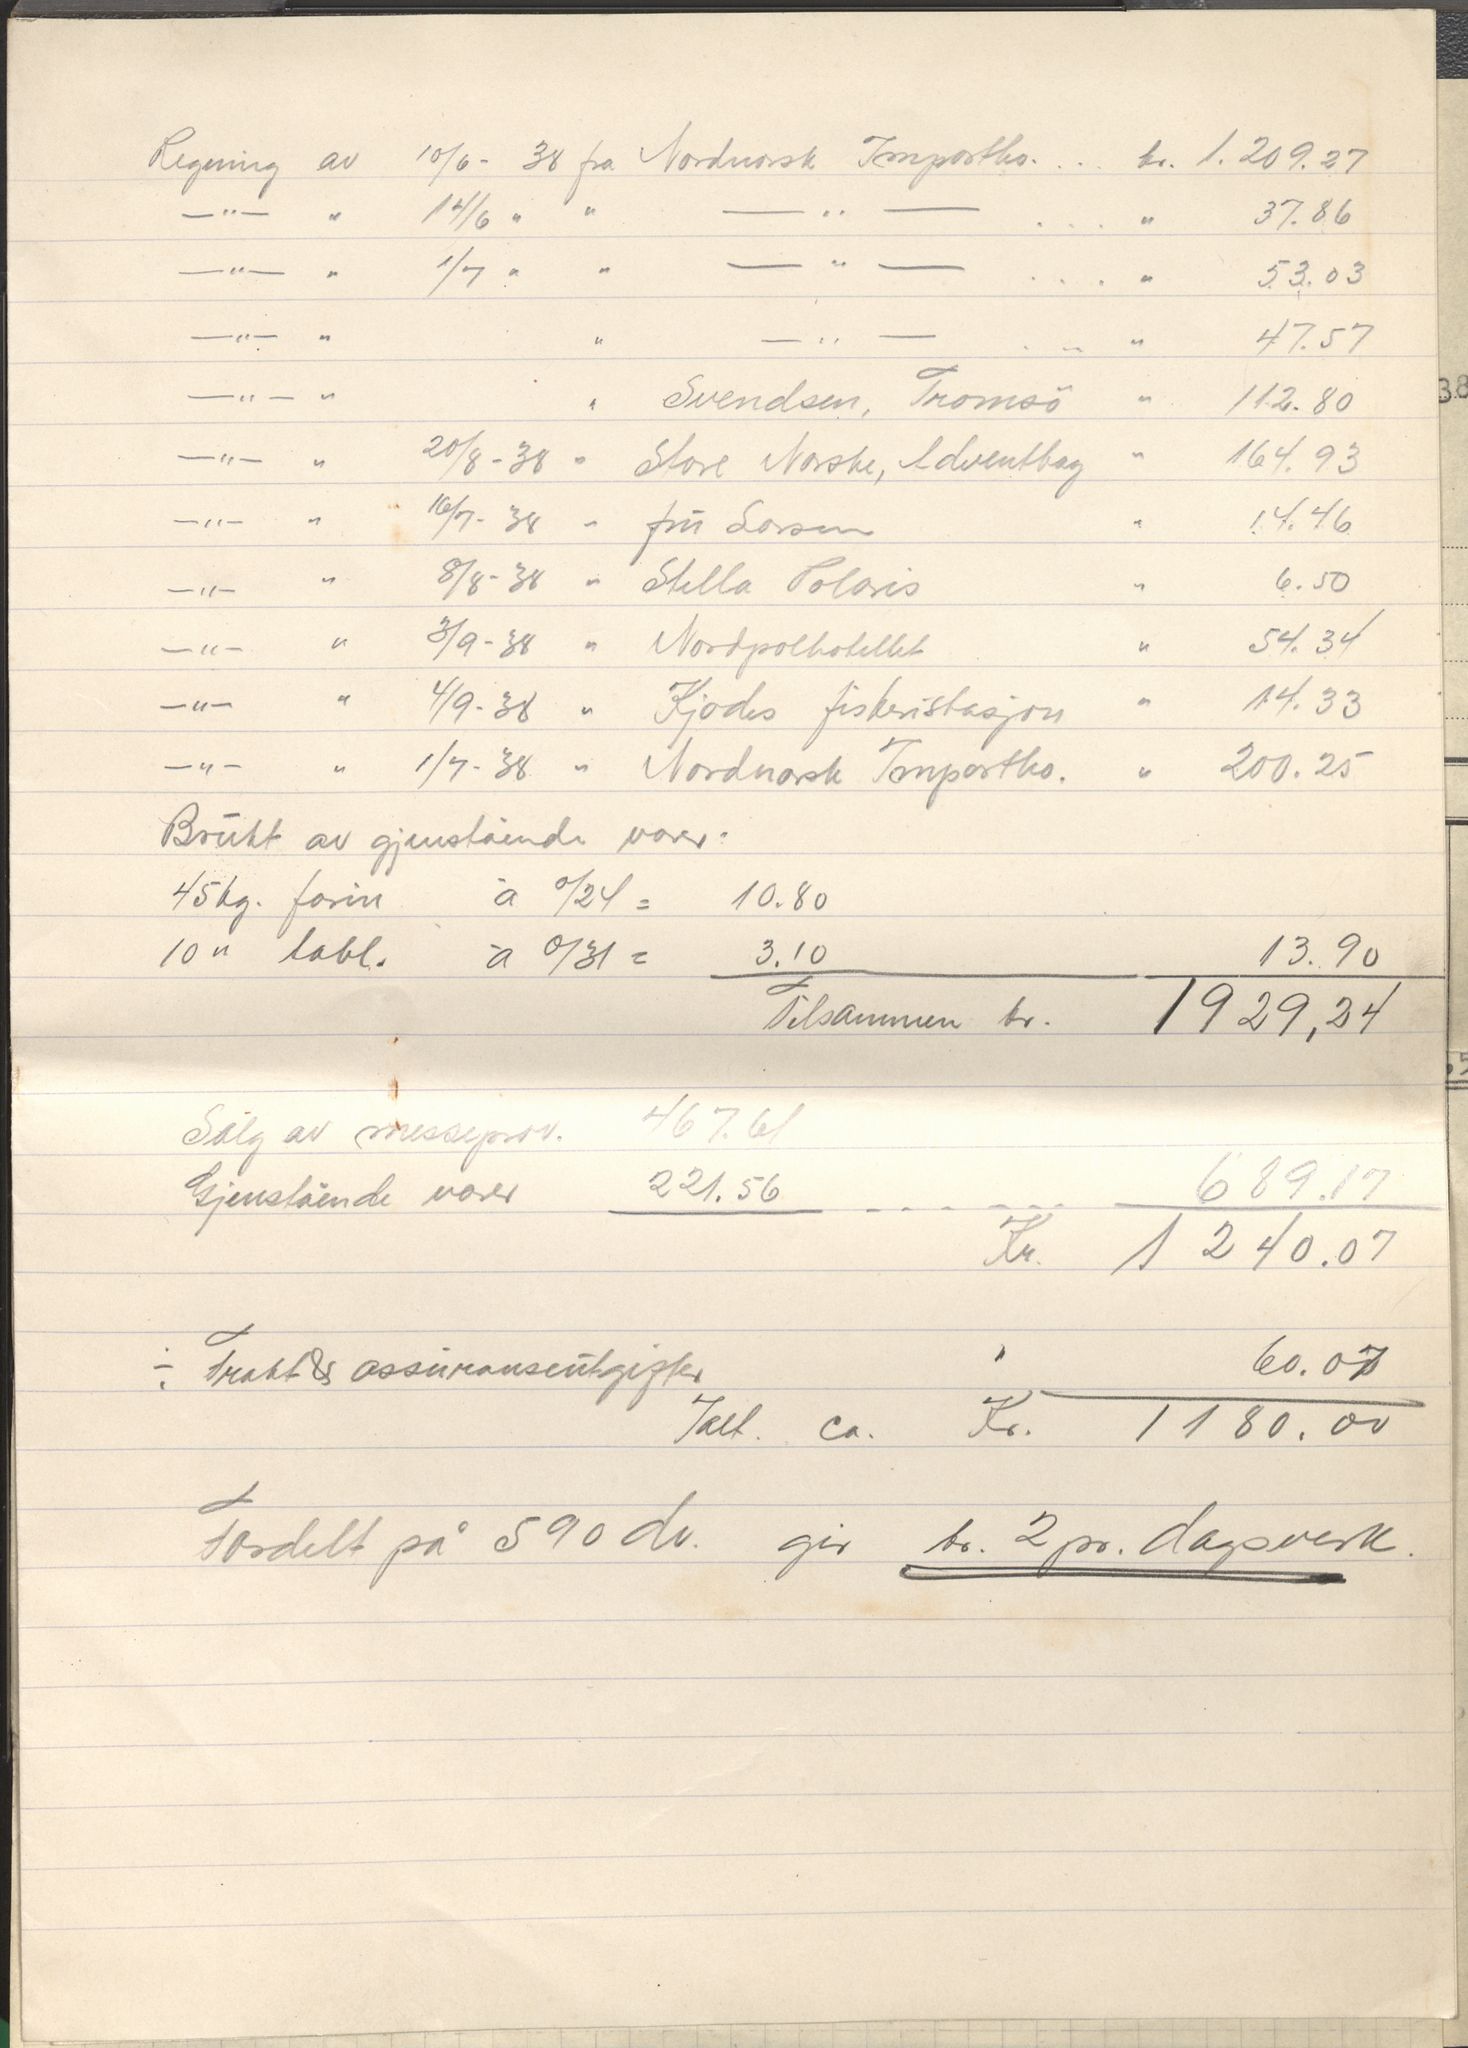 Regning av 10/6-38 fra Nordnorsk Importko. ... kr. 1.209.27
—"— " 14/6 " " —"— .... " 37.86
—"— " 1/7 " " —"— .... " 53.03
—"— " " —"— ... " 47.57
—"— " " Svendsen, Tromsö " 112.80
—"— " 20/8-38 " Store Norske, Adventbay " 164.93
—"— " 16/7-38 " frü Larsen " 14.46
—"— " 8/8-38 " Stella Polaris " 6.50
—"— " 3/9-38 " Nordpolhotellet " 54.34
—"— " 4/9-38 " Kjødes fiskeristasjon " 14.33
—"— " 1/7-38 " Nordnorsk Importko. " 200.25
Brükt av gjenstående varer:
45 kg. farin à 0/24 = 10.80
10 " tabl. à 0/31 = 3.10 13.90
Tilsammen kr. 1929,24
Salg av messeprov. 467.61
Gjenstående varer 221.56 ------ 689.17
Kr. 1240.07
÷ Frakt & assüranseütgifter " 60.07
Ialt. ca. Kr. 1180.00
Fordelt på 590 dv. gir kr. 2 pr. dagsverk.
38